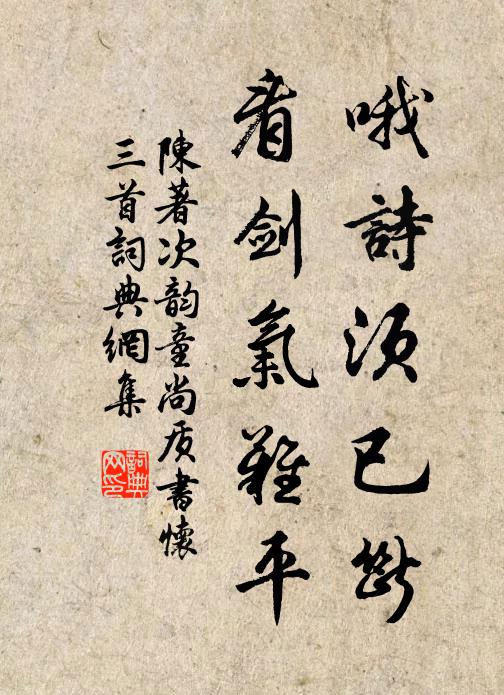 哦詩須已斷
看劍氣難平
陳著次韵童尚质書懷
三首詞典網集
詞典網印